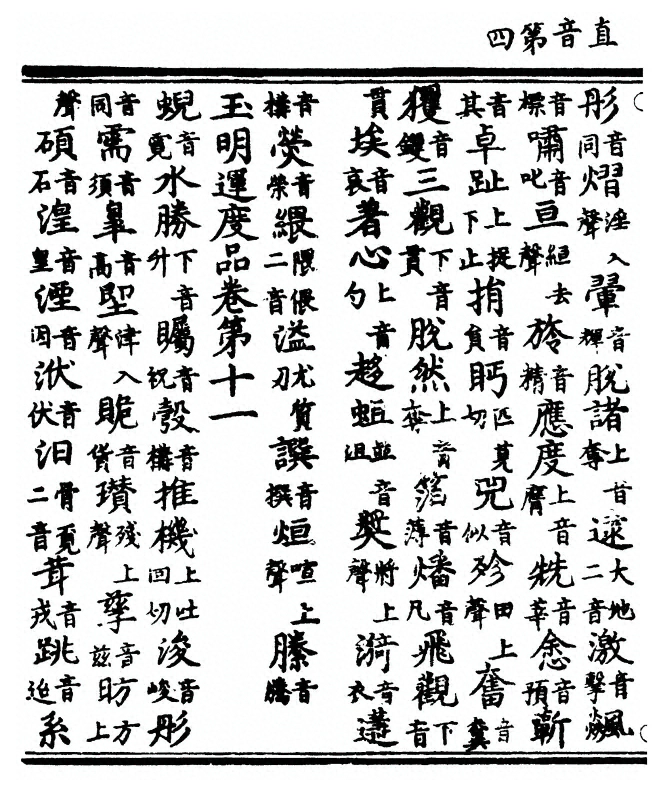 直音第四
彤音同熠淫入聲翬音輝脫諸上音奪逮大地二音激音擊飈
音標嘯音叱亘絙去聲旍音精應度上音膺兟音莘悆音預斬
音其卓趾上捉下止音負眄匹莫切兕音似殄田上聲奮音糞
玃音钁三觀下音貫脫然上音奪箔音薄燔音凡飛觀下音
貫埃音哀著心上音勺趍蛆並音沮獎將上聲漪音衣蘧
音熒音榮隈偎二音溢尤質刃譔音撰烜喧上聲縢音騰
玉明運度品卷第十一
蜺音霓水勝下音升矚音祝彀音構推機上吐回切浚音峻彤
音同需音須皋音高堲津入聲貺音貨瓚殘上聲孳音茲昉方上
聲碩音石湟音皇湮音因洑音伏汨骨覓二音茸音戎跳音迢糸